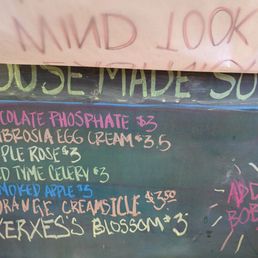 MIND TOOK
OUSE MADE SO
OCOLATE PHOSPHATE $3
MBROSIA EGG CREAM $3.5
PLE ROSE $3
D TYME CELERY $3
MOKED APPLE $3
ORANGE CREAMSICLE $3.50
XERXES'S BLOSSOM $3
ADD
BOB